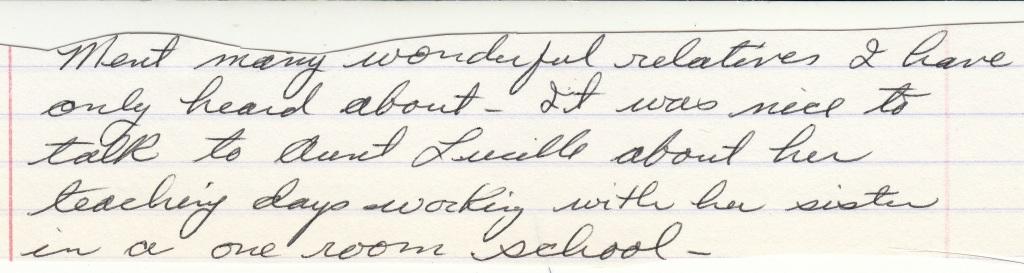 Ment many wonderful relatives I have
only heard about - It was nice to
talk to Aunt Lucille about her
teaching days working with her sister
in a one room school -